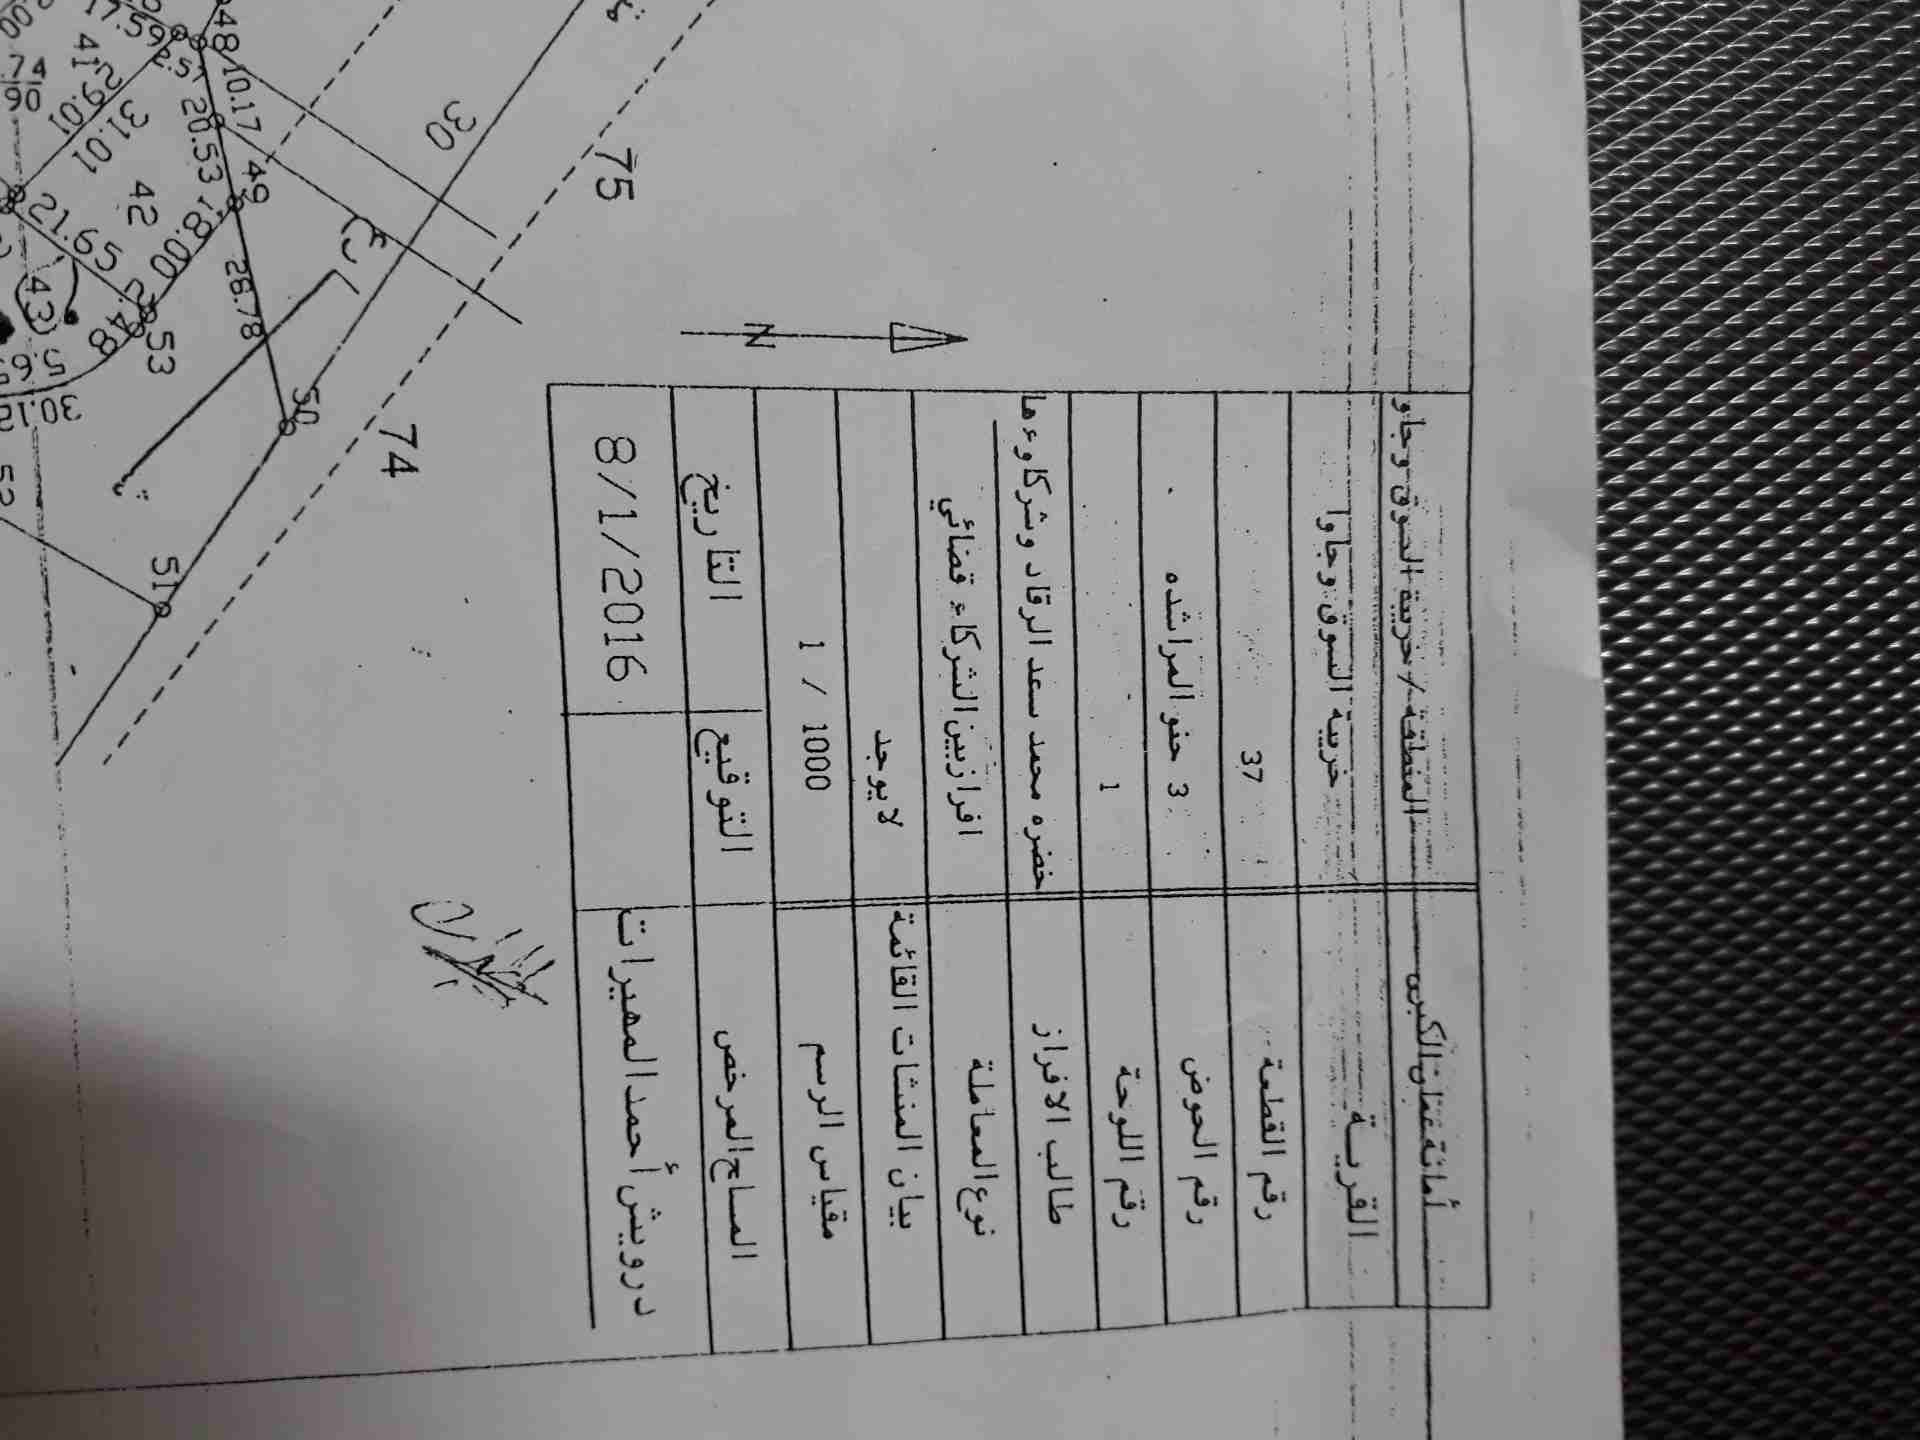 أمانة عمان الكبرى المنطقة / خريبة السوق وجاوا
القرية خريبة السوق وجاوا
رقم القطعة 37
رقم الحوض 3 حنو المراشده
رقم اللوحة 1
طالب الافراز خضره محمد سعد الرقاد وشركاوءها
نوع المعاملة افراز بين الشركاء قضائي
بيان المنشات القائمة لا يوجد
مقياس الرسم 1 / 1000
المساح المرخص التوقيع التاريخ
درويش أحمد المهيرات 8/1/2016
N
75
74
30
48
10.17
49
20.53
17.59
2.57
41
29.01
31.01
42
21.65
18.00
28.78
50
51
52
53
2.48
43
30.12
74
90